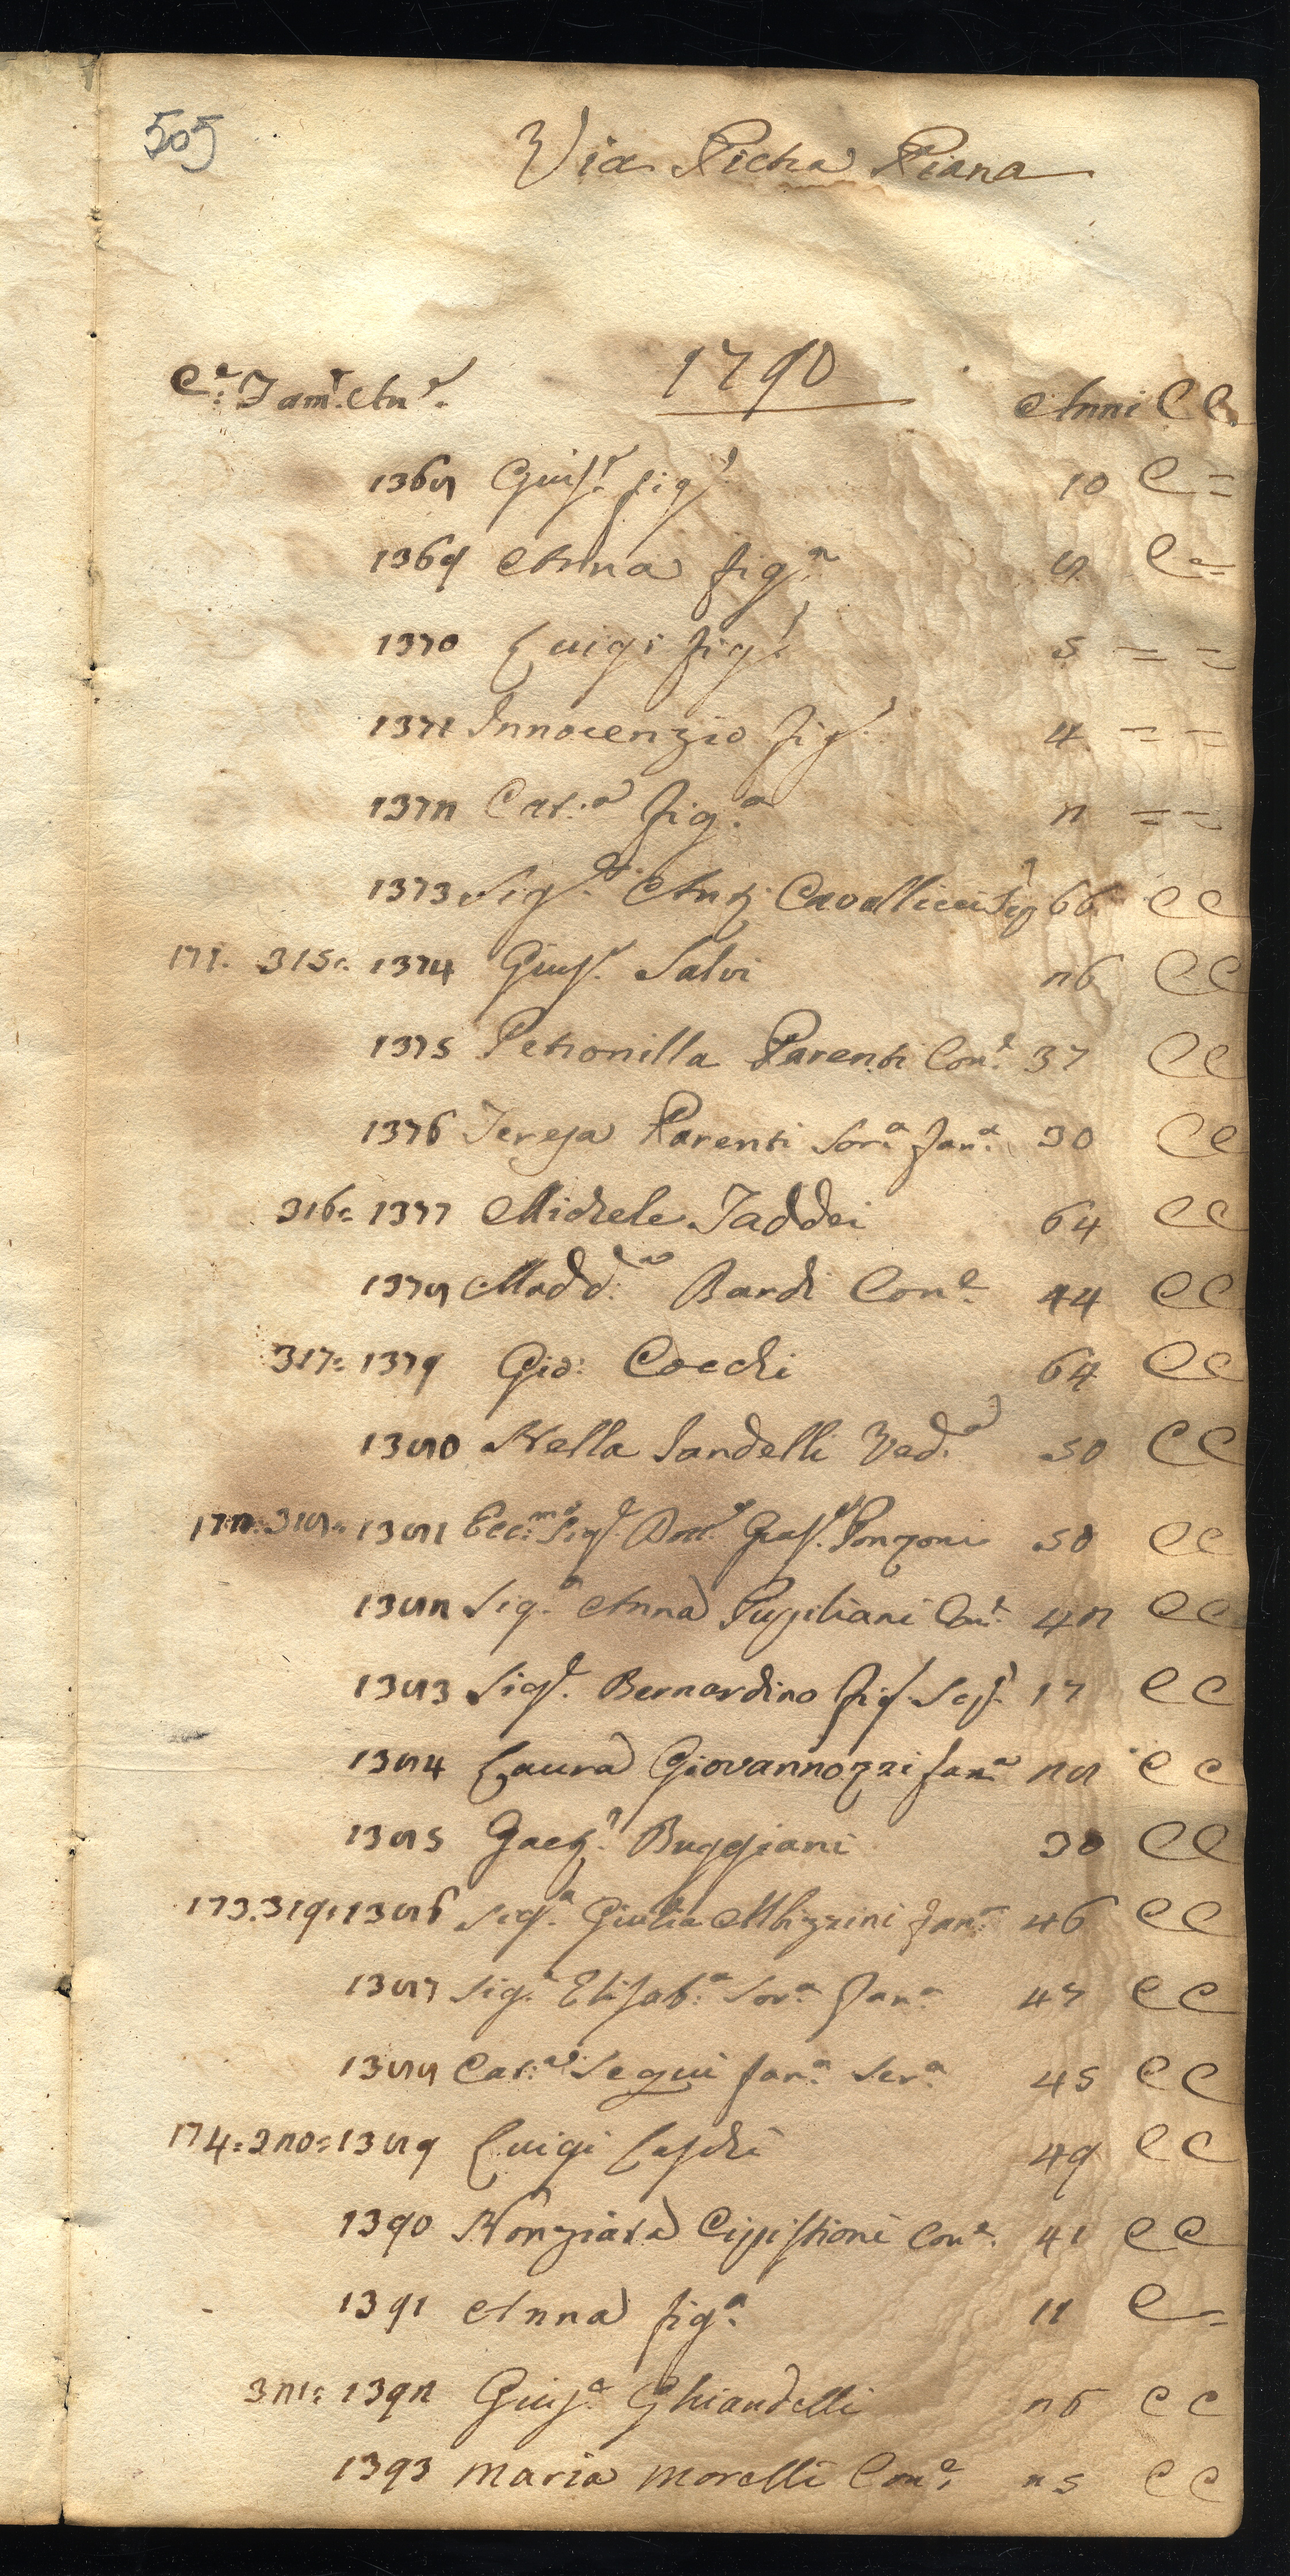 505
Via Pietra Piana
1790
Ce: Fam: An:e Anni C C
1368 Giuse: figo: 10 C =
1369 Anna figa: 8 C =
1370 Luigi figo: 5 = =
1371 Innocenzio figo: 4 = =
1372 Cat:a fig:a 2 = =
1373 Sigr: Anto: Cavallucci 66 C C
171. 315: 1374 Giuse: Salvi 26 C C
1375 Petronilla Parenti Con:e 37 C C
1376 Teresa Parenti Sor:a fan:a 30 C C
316: 1377 Michele Taddei 64 C C
1378 Madd:a Bardi Con:e 44 C C
317: 1379 Gio: Cocchi 64 C C
1380 Nella Sandelli Ved:a 50 C C
172: 318: 1381 Ecc:mo Sigr: Dott:e Gasp:e Ponzoni 50 C C
1382 Sig:a Anna Pugliani Con:e 42 C C
1383 Sigr: Bernardino fig: 17 C C
1384 Laura Giovannozzi fan:a 28 C C
1385 Gaeto: Buggiani 30 C C
173. 319: 1386 Sig:a Giulia Albizzini fan:a 46 C C
1387 Sig:a Elisab:a Sor:a fan:a 47 C C
1388 Cat:a Segui fan:a Ser:a 45 C C
174: 320: 1389 Luigi Laschi 49 C C
1390 Nonziata Con:e 41 C C
1391 Anna fig:a 11 C =
321: 1392 Giuse: Ghiandelli 26 C C
1393 Maria Morelli Con:e 25 C C